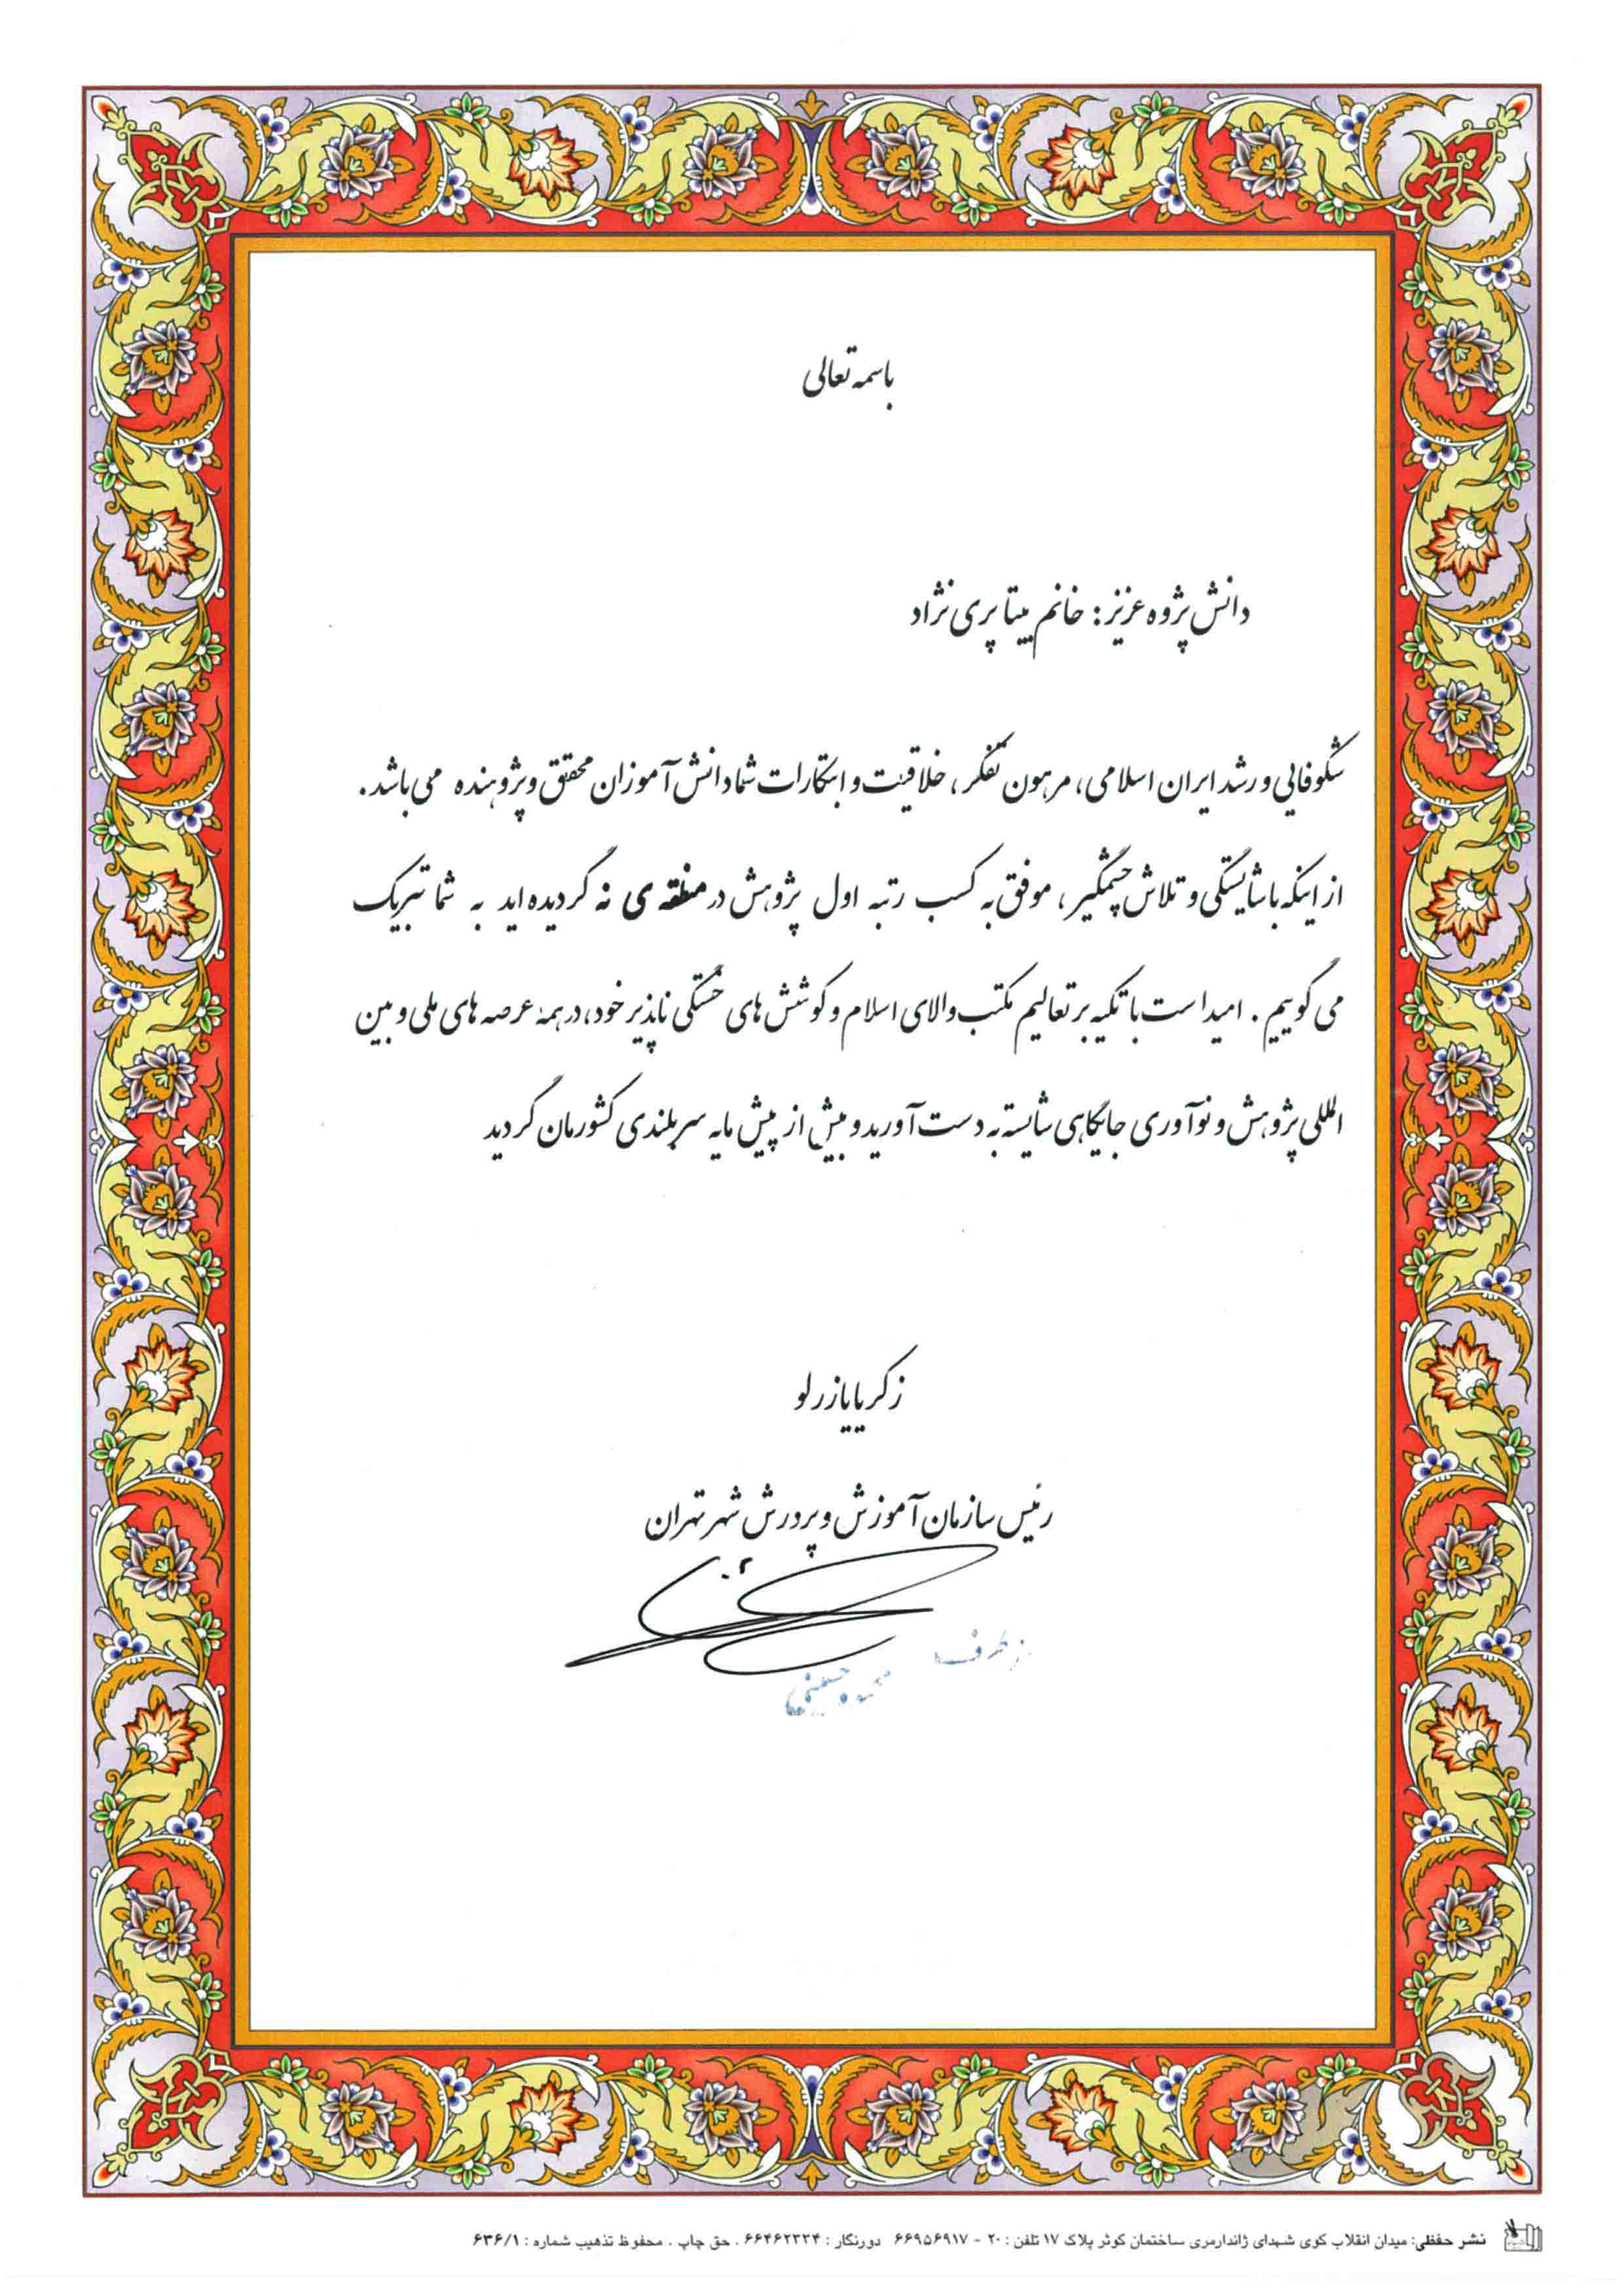 باسمه تعالی
دانش پژوه عزیز: خانم بیتا پری نژاد
شکوفایی و رشد ایران اسلامی، مرهون تفکر، خلاقیت و ابتکارات شما دانش آموزان محقق و پژوهنده می باشد.
از اینکه با شایستگی و تلاش چشمگیر، موفق به کسب رتبه اول پژوهش در منطقه ی نه گردیده اید به شما تبریک
می گوییم. امید است با تکیه بر تعالیم مکتب والای اسلام و کوشش های خستگی ناپذیر خود، در همهٔ عرصه های ملی و بین
المللی پژوهش و نوآوری جایگاهی شایسته به دست آورید و بیش از پیش مایه سربلندی کشورمان گردید
زکریا یازرلو
رئیس سازمان آموزش و پرورش شهر تهران
از طرف
نشر حفظی: میدان انقلاب کوی شهدای ژاندارمری ساختمان کوثر پلاک ۱۷ تلفن : ۲۰ - ۶۶۹۵۶۹۱۷ دورنگار : ۶۶۴۶۲۳۳۴ . حق چاپ . محفوظ تذهیب شماره : ۶۳۶/۱